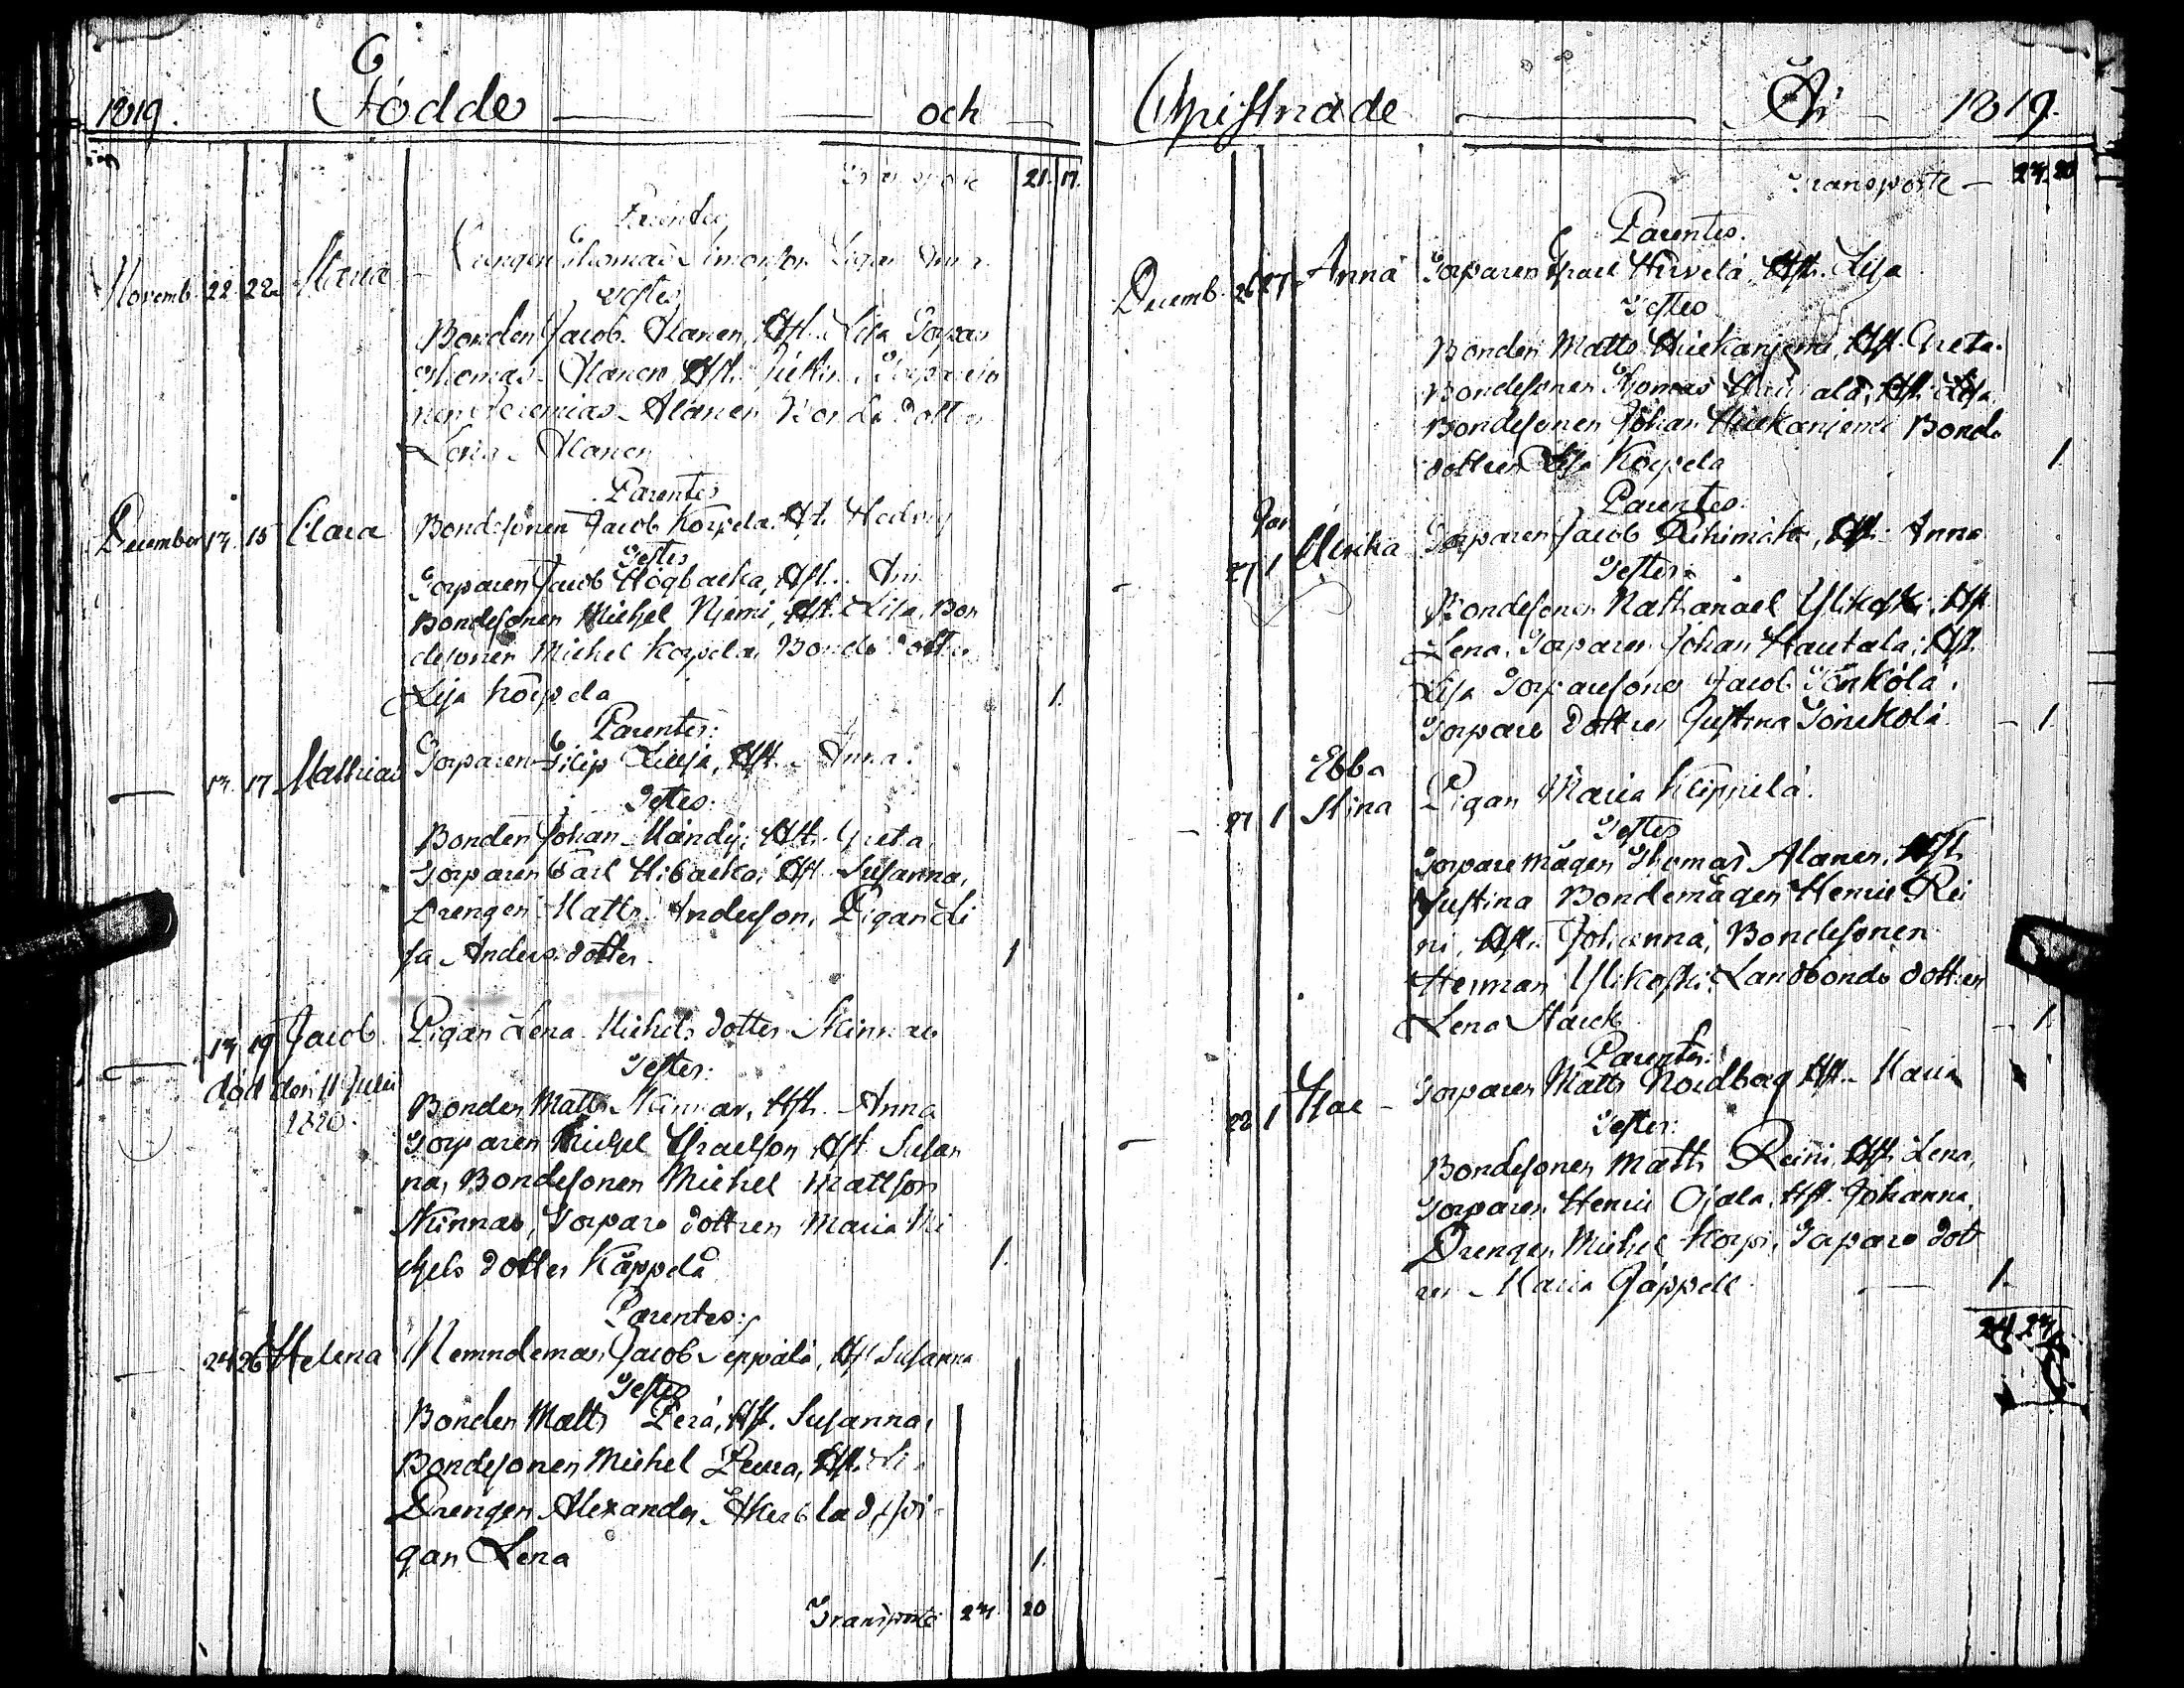 1819. Födde och
Transporte 21. 17.
Parentes
Novemb. 22. 22. Maria Drengen Thomas Simonson Pigan Anna
Testes
Bonden Jacob Alanen, Hst. Lisa Torpar
Thomas Alanen Hst.
nen Jeremias Alanen Bonde dottren
Alanen
Parentes
December 14. 15 Clara Bondesonen Jacob Korpela, Hst. Hedvig
Testes
Torparen Jacob Högbacka, Hst. Ann
Bondesonen Michel Niemi, Hst. Lisa, Bon
desonen Michel Korpela, Bonde dottren
Lisa Korpela 1.
Parentes:
14 17 Mathias Torparen Filip Lillsja, Hst. Anna.
Testes:
Bonden Johan Mändy; Hst. Greta,
Torparen Carl Hibacka, Hst. Susanna,
Drengen Matts Anderson, Pigan Li
sa Anders dotter 1
14 19 Jacob Pigan Lena Michels dotter Skinnar
Testes:
död den 11 Julii
1820.
Bonden Matts Skinnar, Hst. Anna
Torparen Michel Israelson Hst. Susan
na, Bondesonen Michel Mattson
Skinnar, Torpare dottren Maria Mi
chels dotter Käppelä 1.
Parentes:
24 26 Helena Nemndeman Jacob Seppälä, Hst Susanna
Testes
Bonden Matts Perä, Hst. Susanna,
Bondesonen Michel Peura, Hst. Li
Drengen Alexander Akerblad, pi
gan Lena 1.
Transporte 24 20
Christnade År 1819.
Transporte 24. 20
Parentes.
Decemb. 26 27 Anna Torparen Isac Hirvelä, Hst. Lisa
Testes
Bonden Matts Hiekaniemi, Hst. Greta.
Bondesonen Thomas Hst. Lisa
Bondesonen Johan Hiekaniemi Bonde
dottren Lisa Korpela 1.
Parentes:
Jan.
27 1 Ulrika Torparen Jacob Rihimäki, Hst. Anna
Testes:
Bondesonen Nathanael Ylikoski, Hst
Lena, Torparen Johan Hautala, Hst.
Lisa Torparesonen Jacob Jönkölä,
Torpare dottren Justina Jönckölä 1.
Ebba
27 1 Stina Pigan Maria Knipnilä.
Testes
Torpare mågen Thomas Alanen, Hst
Justina Bondemågen Henric Rei
ni, Hst. Johanna, Bondesonen
Herman Ylikoski, Landbonde dottren
Lena Starck 1.
Parentes:
28 1 Isac Torparen Matts Nordberg Hst. Maria
Testes:
Bondesonen Matts Reini, Hst. Lena,
Torparen Henric Ojala, Hst. Johanna,
Drengen Michel Korpi, Torpare dott
ren Maria Jäppell 1.
24 24